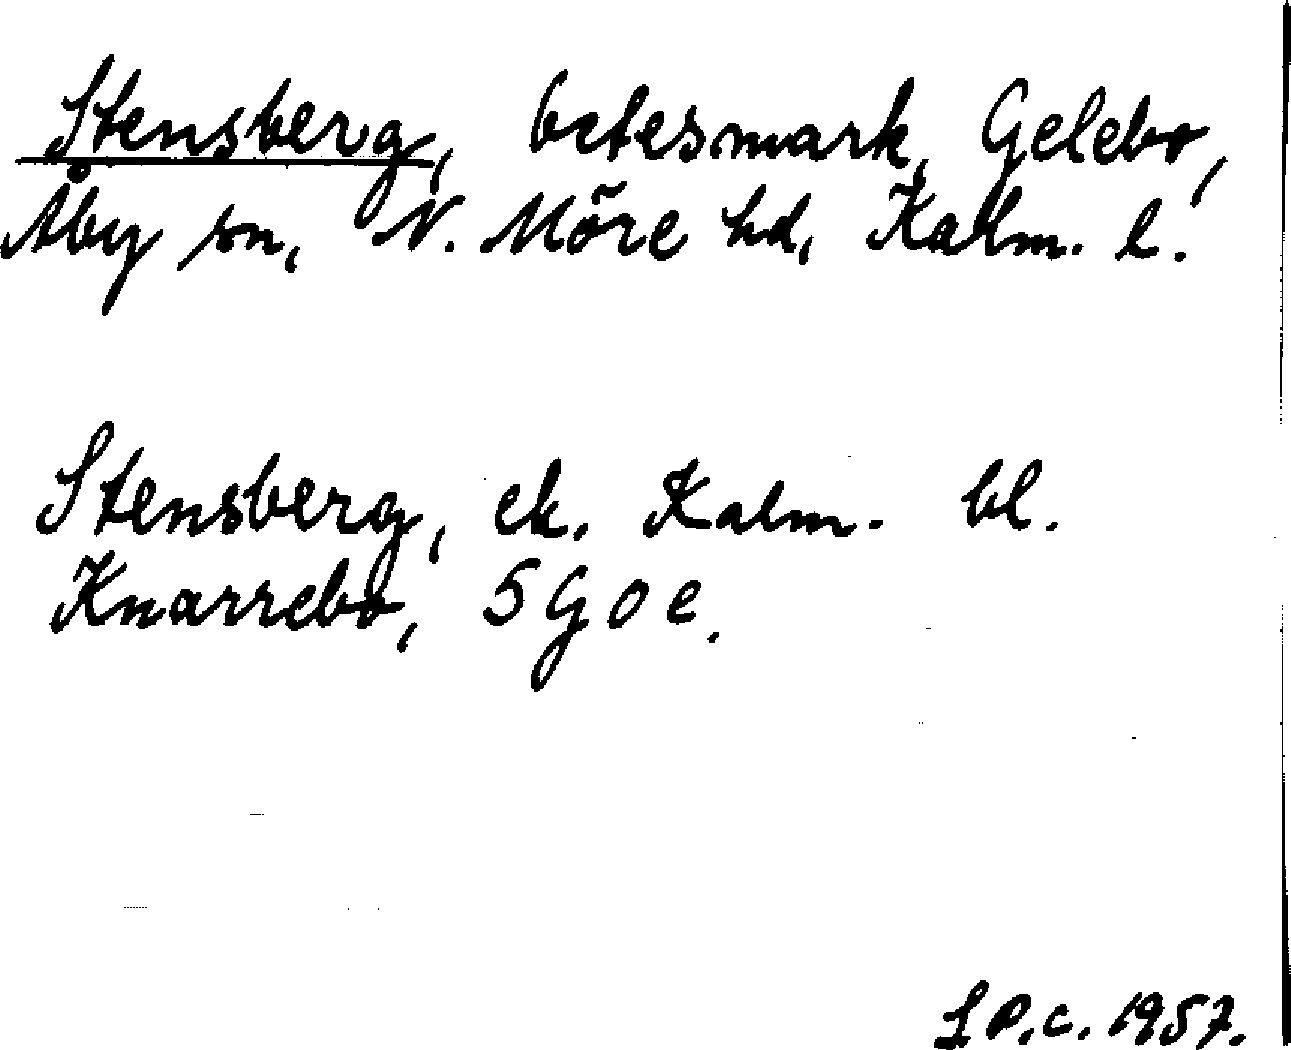 Stensberg, betesmark, Gelebo,
Åby sn, N. Möre hd, Kalm. l.
Stensberg, ek. Kalm. bl.
Knarrebo, 5 G o e.
L P.c. 1957.